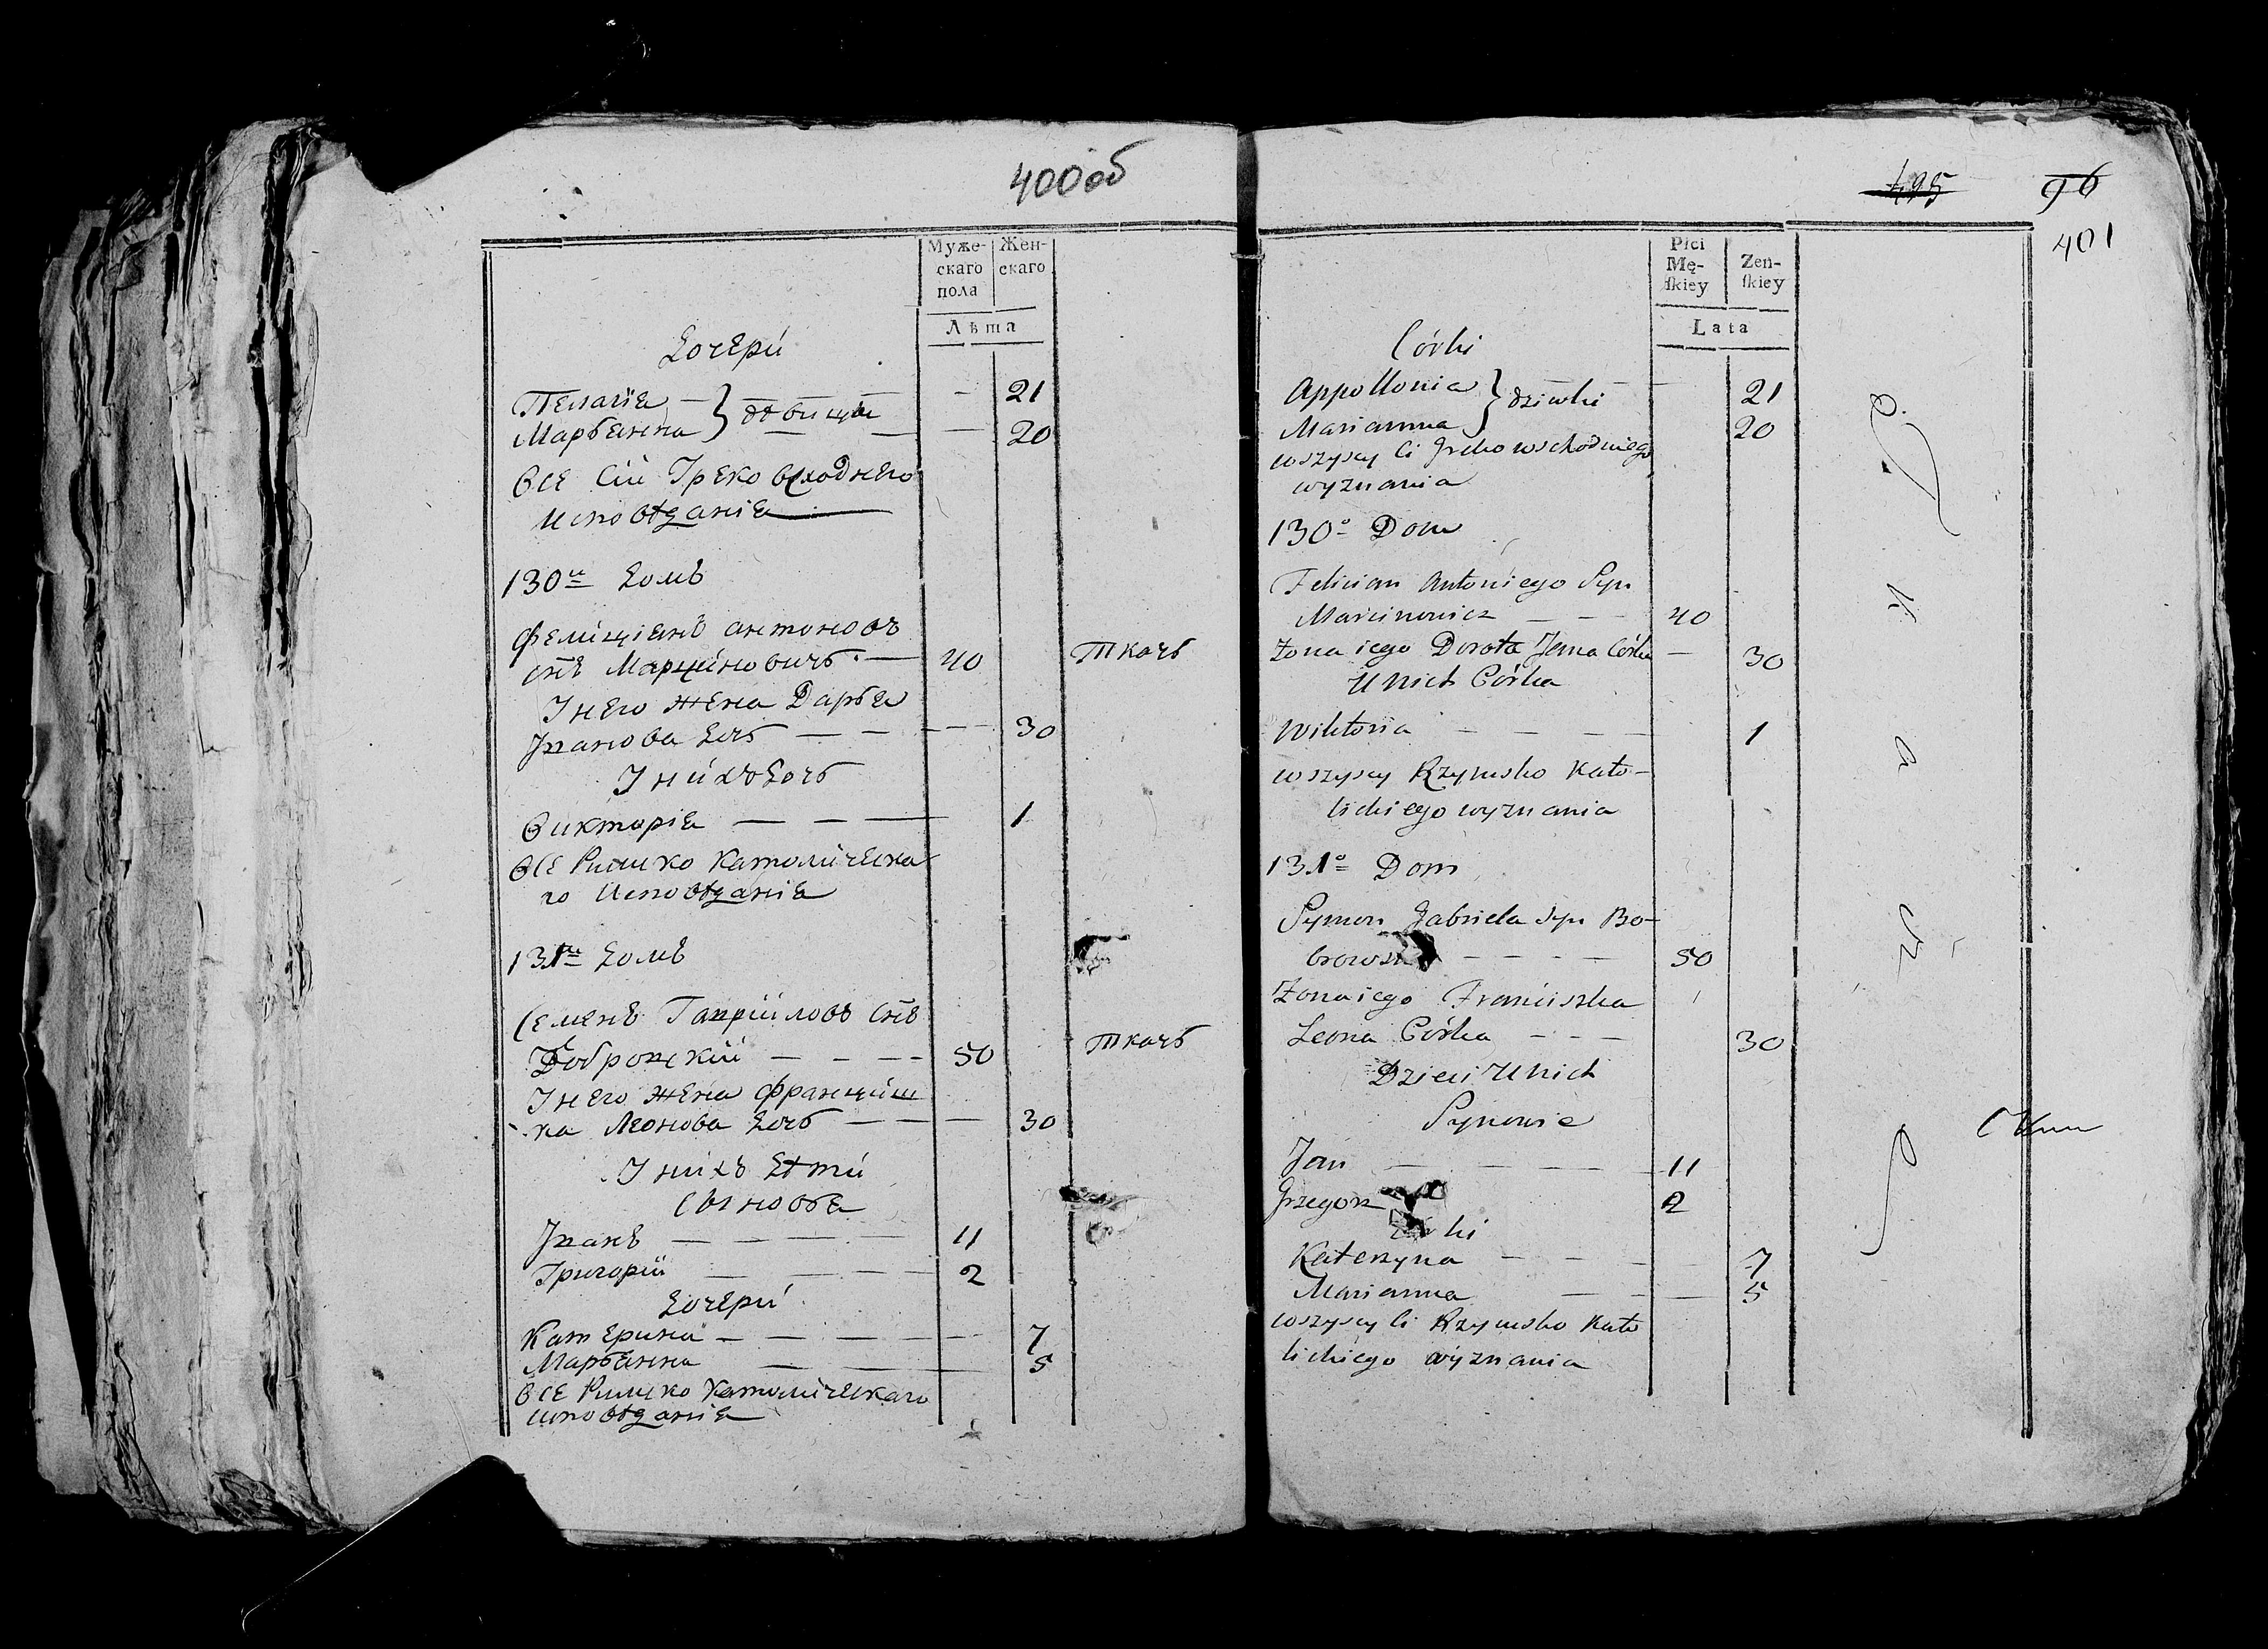 400 об
Муже-
скаго
пола
Жен-
скаго
Лѣта
Дочери
Пелагiя — } дѣвицы — 21
Марьянна — 20
Все сiи Греко всходнего
исповѣданiя
130й Домъ
Фелицiянъ Антоновъ
снъ Марциновичъ — 40 Ткачъ
У него жена Дарья
Иванова дочь — — — 30
У нихъ дочь
Викторiя — — — 1
Все Римско Католическа
го Исповѣданiя
131й Домъ
Семенъ Гаврiиловъ снъ
Бобровскiй — — — 50 Ткачъ
У него жена Францыш
ка Леонова дочь — — — 30
У нихъ дѣти
Сыновья
Иванъ — — — — 11
Григорiй — — — 2
Дочери
Катерина — — — — 7
Марьянна — — — 5
Все Римско Католическаго
исповѣданiя
495 96
401
Płci
Mę-
ſkiey
Żeń-
ſkiey
Lata
Córki
Appollonia } dziwki — 21
Marianna 20
wszyscy Ci Greko wschodniego
wyznania
130o Dom
Felician Antoniego Syn
Marcinowicz — — — 40
Żona iego Dorota Jana Córka — 30
U nich Córka
Wiktoria — — — — 1
wszyscy Rzymsko Kato-
lickiego wyznania
131o Dom
Symon Gabriela Syn Bo-
browski — — — — 50
Żona iego Franciszka
Leona Córka — — — 30
Dzieci U nich
Synowie
Jan — — — — 11
Grzegorz 2
Córki
Katerzyna — — — — 7
Marianna — — — 5
wszyscy Ci Rzymsko Kato
lickiego wyznania